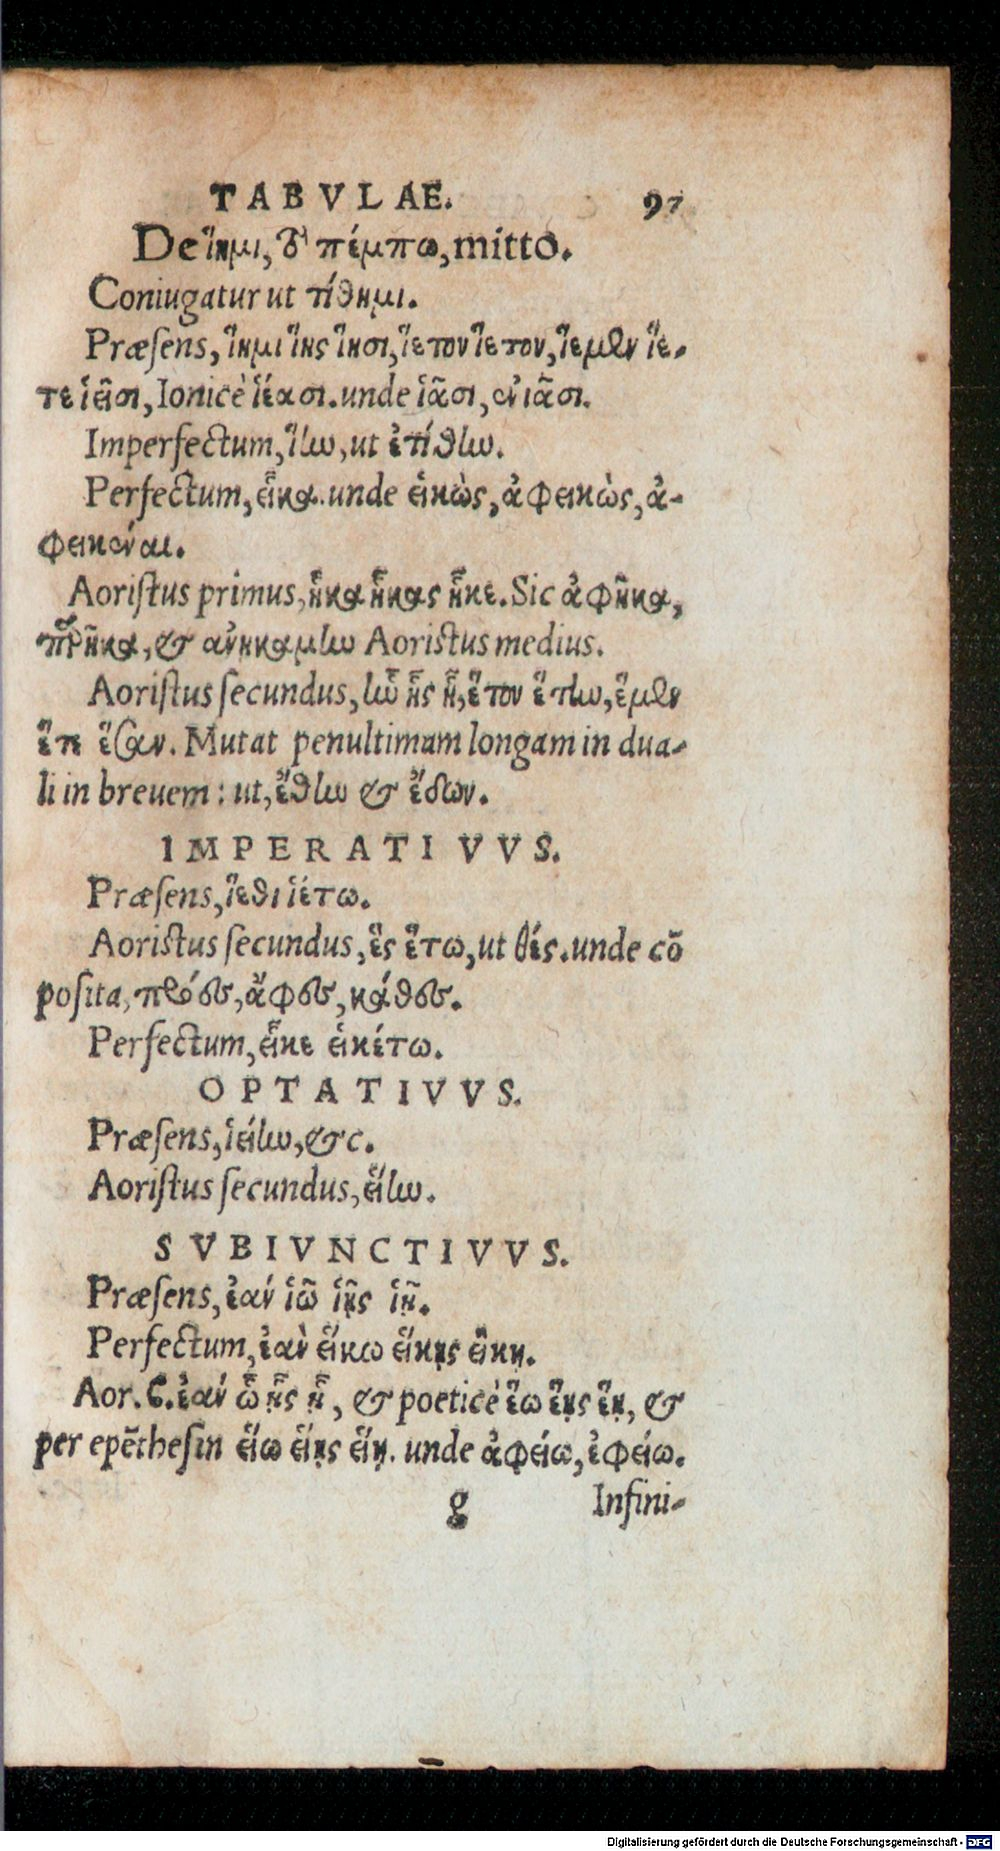 TABVLAE. 97
De ἵημι, τὸ πέμπω, mitto.
Coniugatur ut τίθημι.
Præsens, ἵημι ἵης ἵησι, ἵετον ἵετον, ἵεμεν ἵε-
τε ἱεῖσι, Ionicè ἱέασι. unde ἱᾶσι, ἐνιᾶσι.
Imperfectum, ἵην, ut ἐτίθην.
Perfectum, εἷκα. unde εἱκὼς, ἀφεικὼς, ἀ-
φεικέναι.
Aoristus primus, ἧκα ἧκας ἧκε. Sic ἀφῆκα,
&  Aoristus medius.
Aoristus secundus, ἣν ἧς ἧ, ἕτον ἕτην, ἕμεν
ἕτε ἕσαν. Mutat penultimam longam in dua-
li in breuem: ut, ἔθην & ἔδων.
IMPERATIVVS.
Præsens, ἵεθι ἱέτω.
Aoristus secundus, ἓς ἕτω, ut θές. unde cō
posita, πρόες, ἄφες, κάθες.
Perfectum, εἷκε εἱκέτω.
OPTATIVVS.
Præsens, ἱείην, &c.
Aoristus secundus, εἵην.
SVBIVNCTIVVS.
Præsens, ἐάν ἱῶ ἱῇς ἱῇ.
Perfectum, ἐὰν εἵκω εἵκῃς εἵκῃ.
Aor. ς. ἐάν ὧ ᾗς ᾗ, & poeticè ἕω ἕῃς ἕῃ, &
per epēthesin εἵω εἵῃς εἵῃ. unde ἀφείω, ἐφείω.
g Infini-